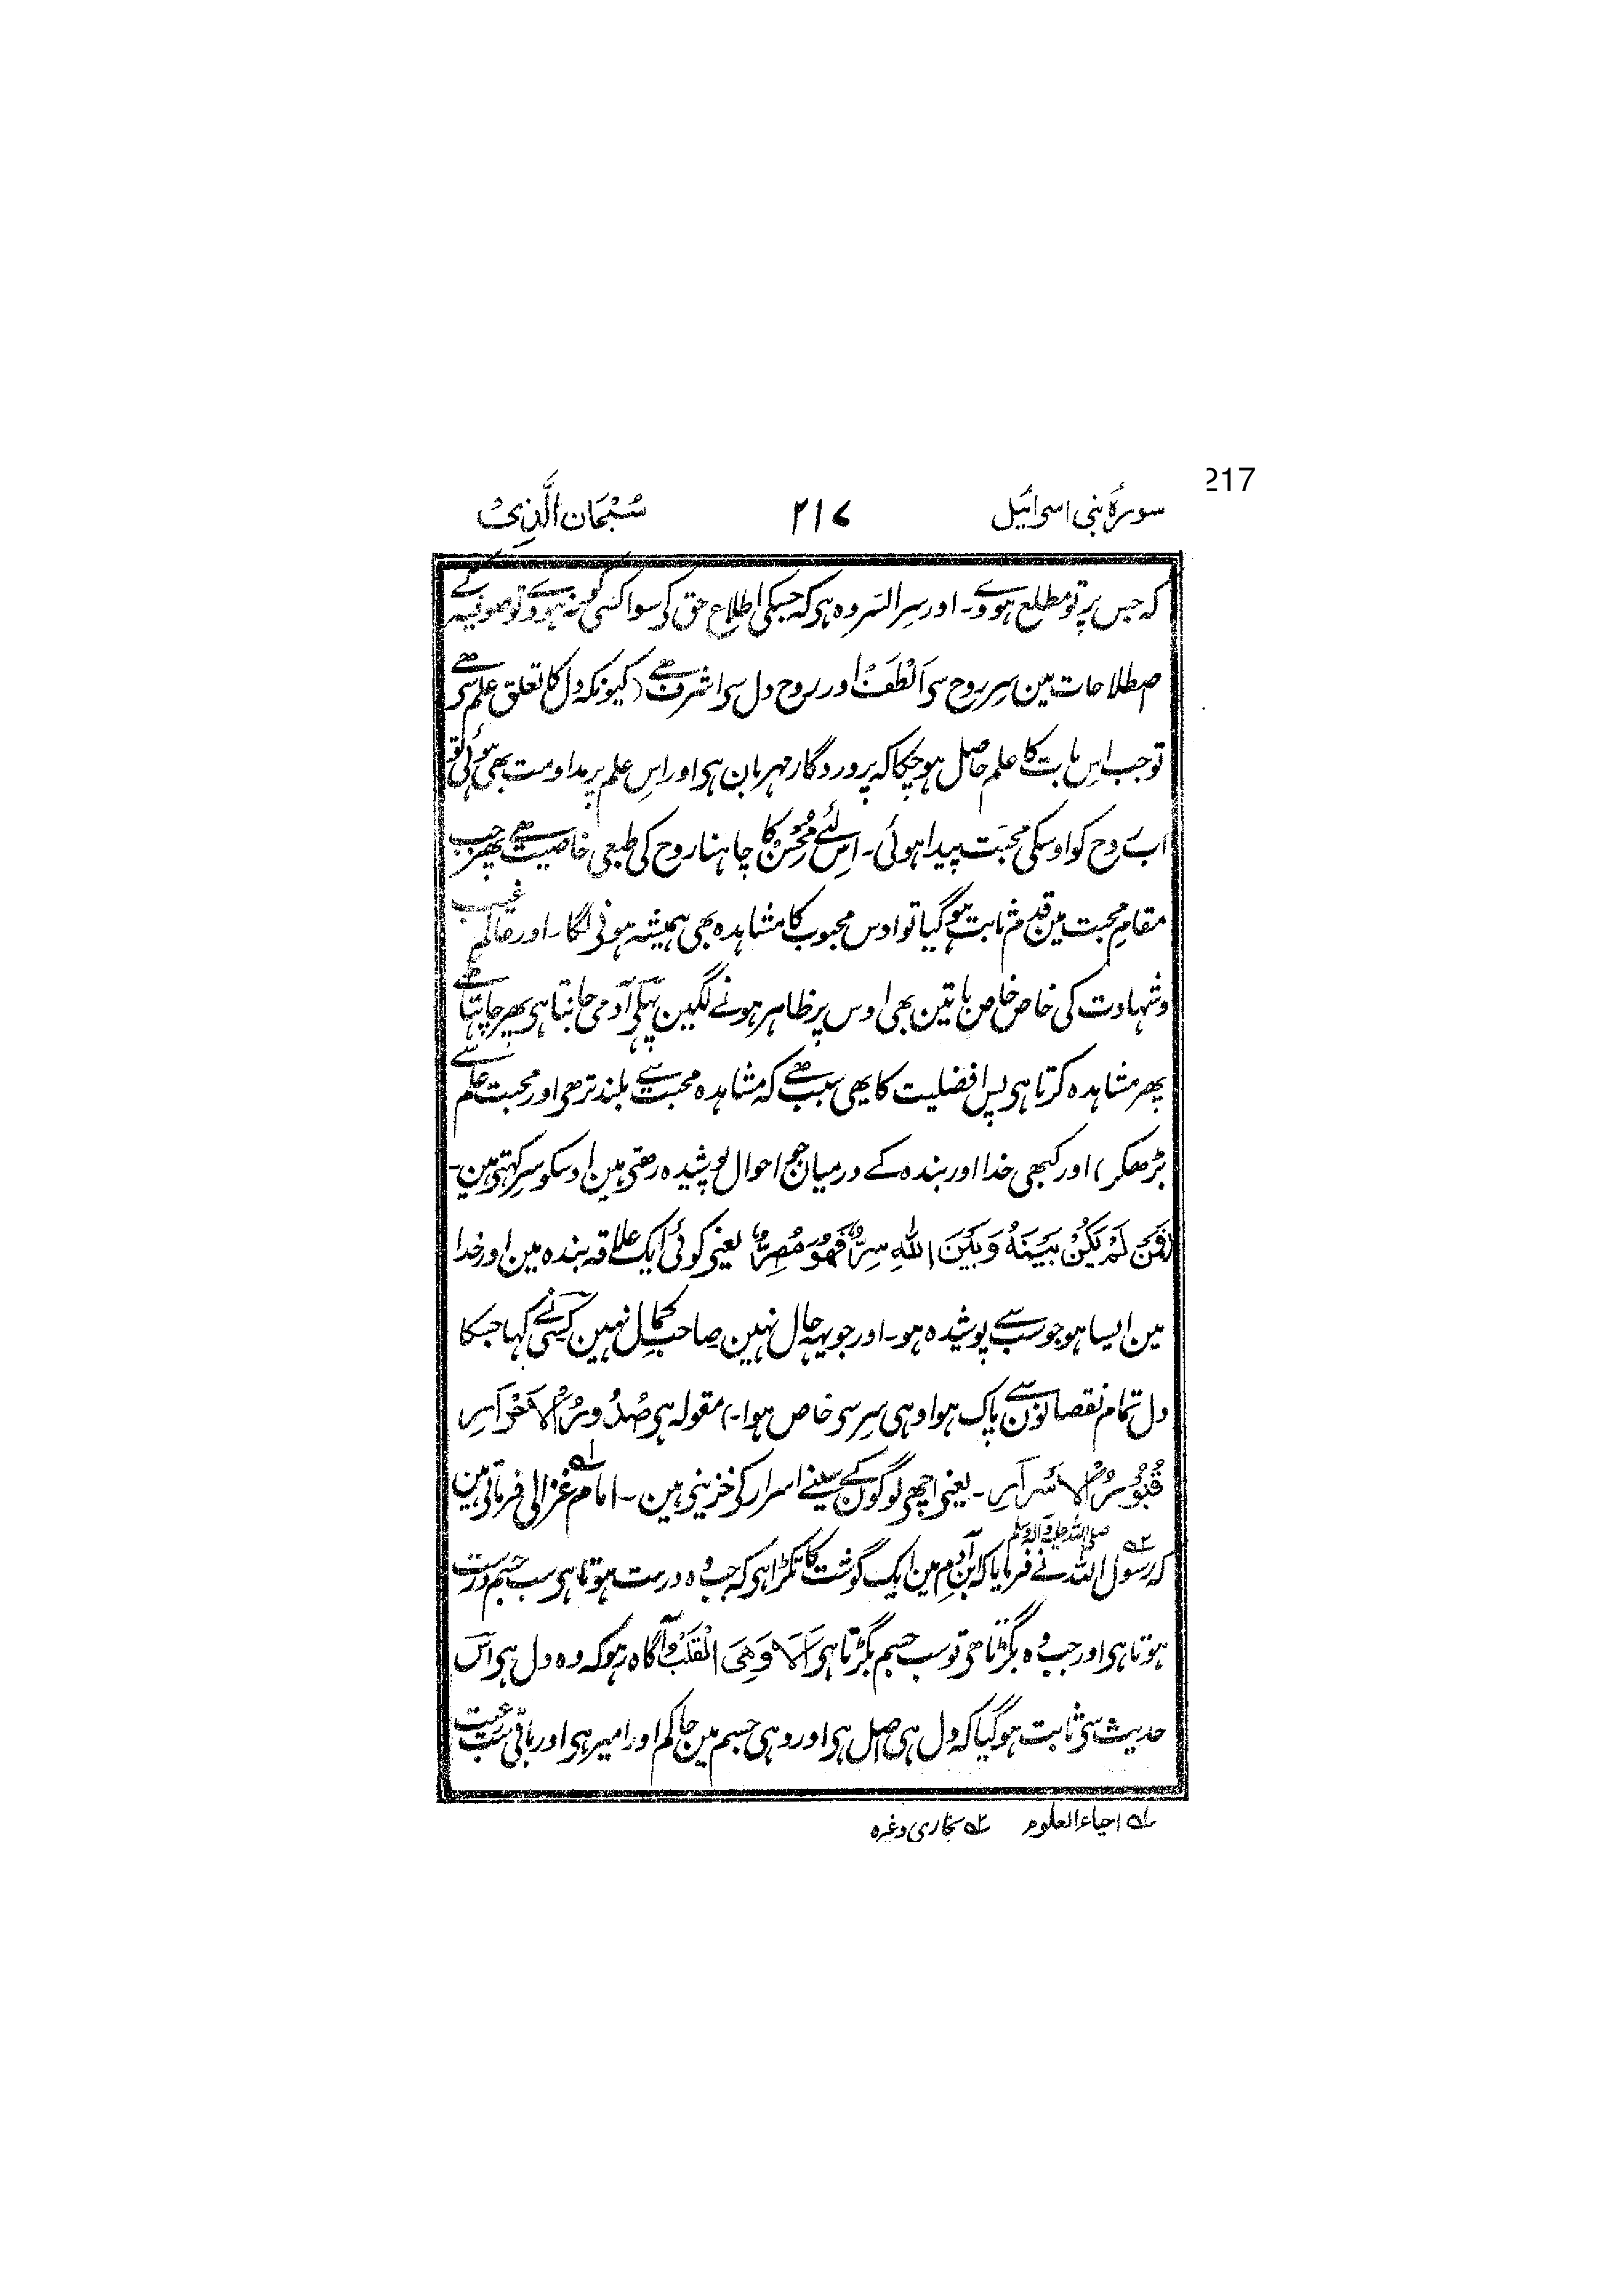 217
سورۂ بنی اسرائیل ۲۱۷ سُبْحَان الَّذِیْ
کہ جس پر تو مطلع ہووے۔ اور سِر السّر وہ ہی کہ جسکی اطلاع حق کی سوا کسی کو نہ ہووے تو صوفیہ کے
صطلاحات مین سِر روح سی اَلْطَفْ اور روح دل سی اشرف ہے (کیونکہ دل کا تعلق علم سی ہے
توجب اس بات کا علم حاصل ہو چکا کہ پروردگار مہربان ہی اور اس علم پر مداومت بھی ہوئی تو
اب روح کو اوسکی محبّت پیدا ہوئی۔ اس لئے مُحْسِنْ کا چاہنا روح کی طبعی خاصیت ہے پھر جب
مقام محبت مین قدم ثابت ہو گیا تو اوس محبوب کا مشاہدہ بھی ہمیشہ ہونی لگا۔ اور عالم غیب
وشہادت کی خاص خاص باتین بھی اوس پر ظاہر ہونے لگین پہلی آدمی جانتا ہی پھر چاہتا ہے
پھر مشاہدہ کرتا ہی پس افضلیت کا یہی سبب ہے کہ مشاہدہ محبت سے بلند تر ہی اور محبت علم سے
بڑھکر) اور کبھی خدا اور بندہ کے درمیان جو احوال پوشیدہ رہتی ہین اوسکو سِر کہتی ہین۔
(فَمَنْ لَمْ یَکُنْ بَیْنَهُ وَبَیْنَ اللهِ سِرٌّ فَهُوَ مُصِرٌّ یعنی کوئی ایک علاقہ بندہ مین اور خدا
مین ایسا ہو جو سب سے پوشیدہ ہو۔ اور جو یہہ حال نہین صاحب کمال نہین کسی نے کہا جسکا
دل تمام نقصانون سے پاک ہوا وہی سِر سی خاص ہوا۔) مقولہ ہی صُدُوْرُ الْاَحْرَارِ
قُبُوْرُ الْاَسْرَارِ۔ یعنی اچھی لوگون کے سینے اسرار کی خزینی ہین۔ امام غزالی ؎۱ فرماتی ہین
کہ رسول اللہ ؎۲ صلی اللہ علیہ وآلہ وسلم نے فرمایا کہ ابن آدم مین ایک گوشت کا ٹکڑا ہی کہ جب وہ درست ہوتا ہی سب جسم درست
ہوتا ہی اور جب وہ بگڑتا ہی تو سب جسم بگڑتا ہی اَلَا وَهِیَ الْقَلْبُ آگاہ ہو کہ وہ دل ہی اس
حدیث سی ثابت ہو گیا کہ دل ہی اصل ہی اور وہی جسم مین حاکم اور امیر ہی اور باقی سب رعیت
؎۱ احیاء العلوم ؎۲ بخاری وغیرہ